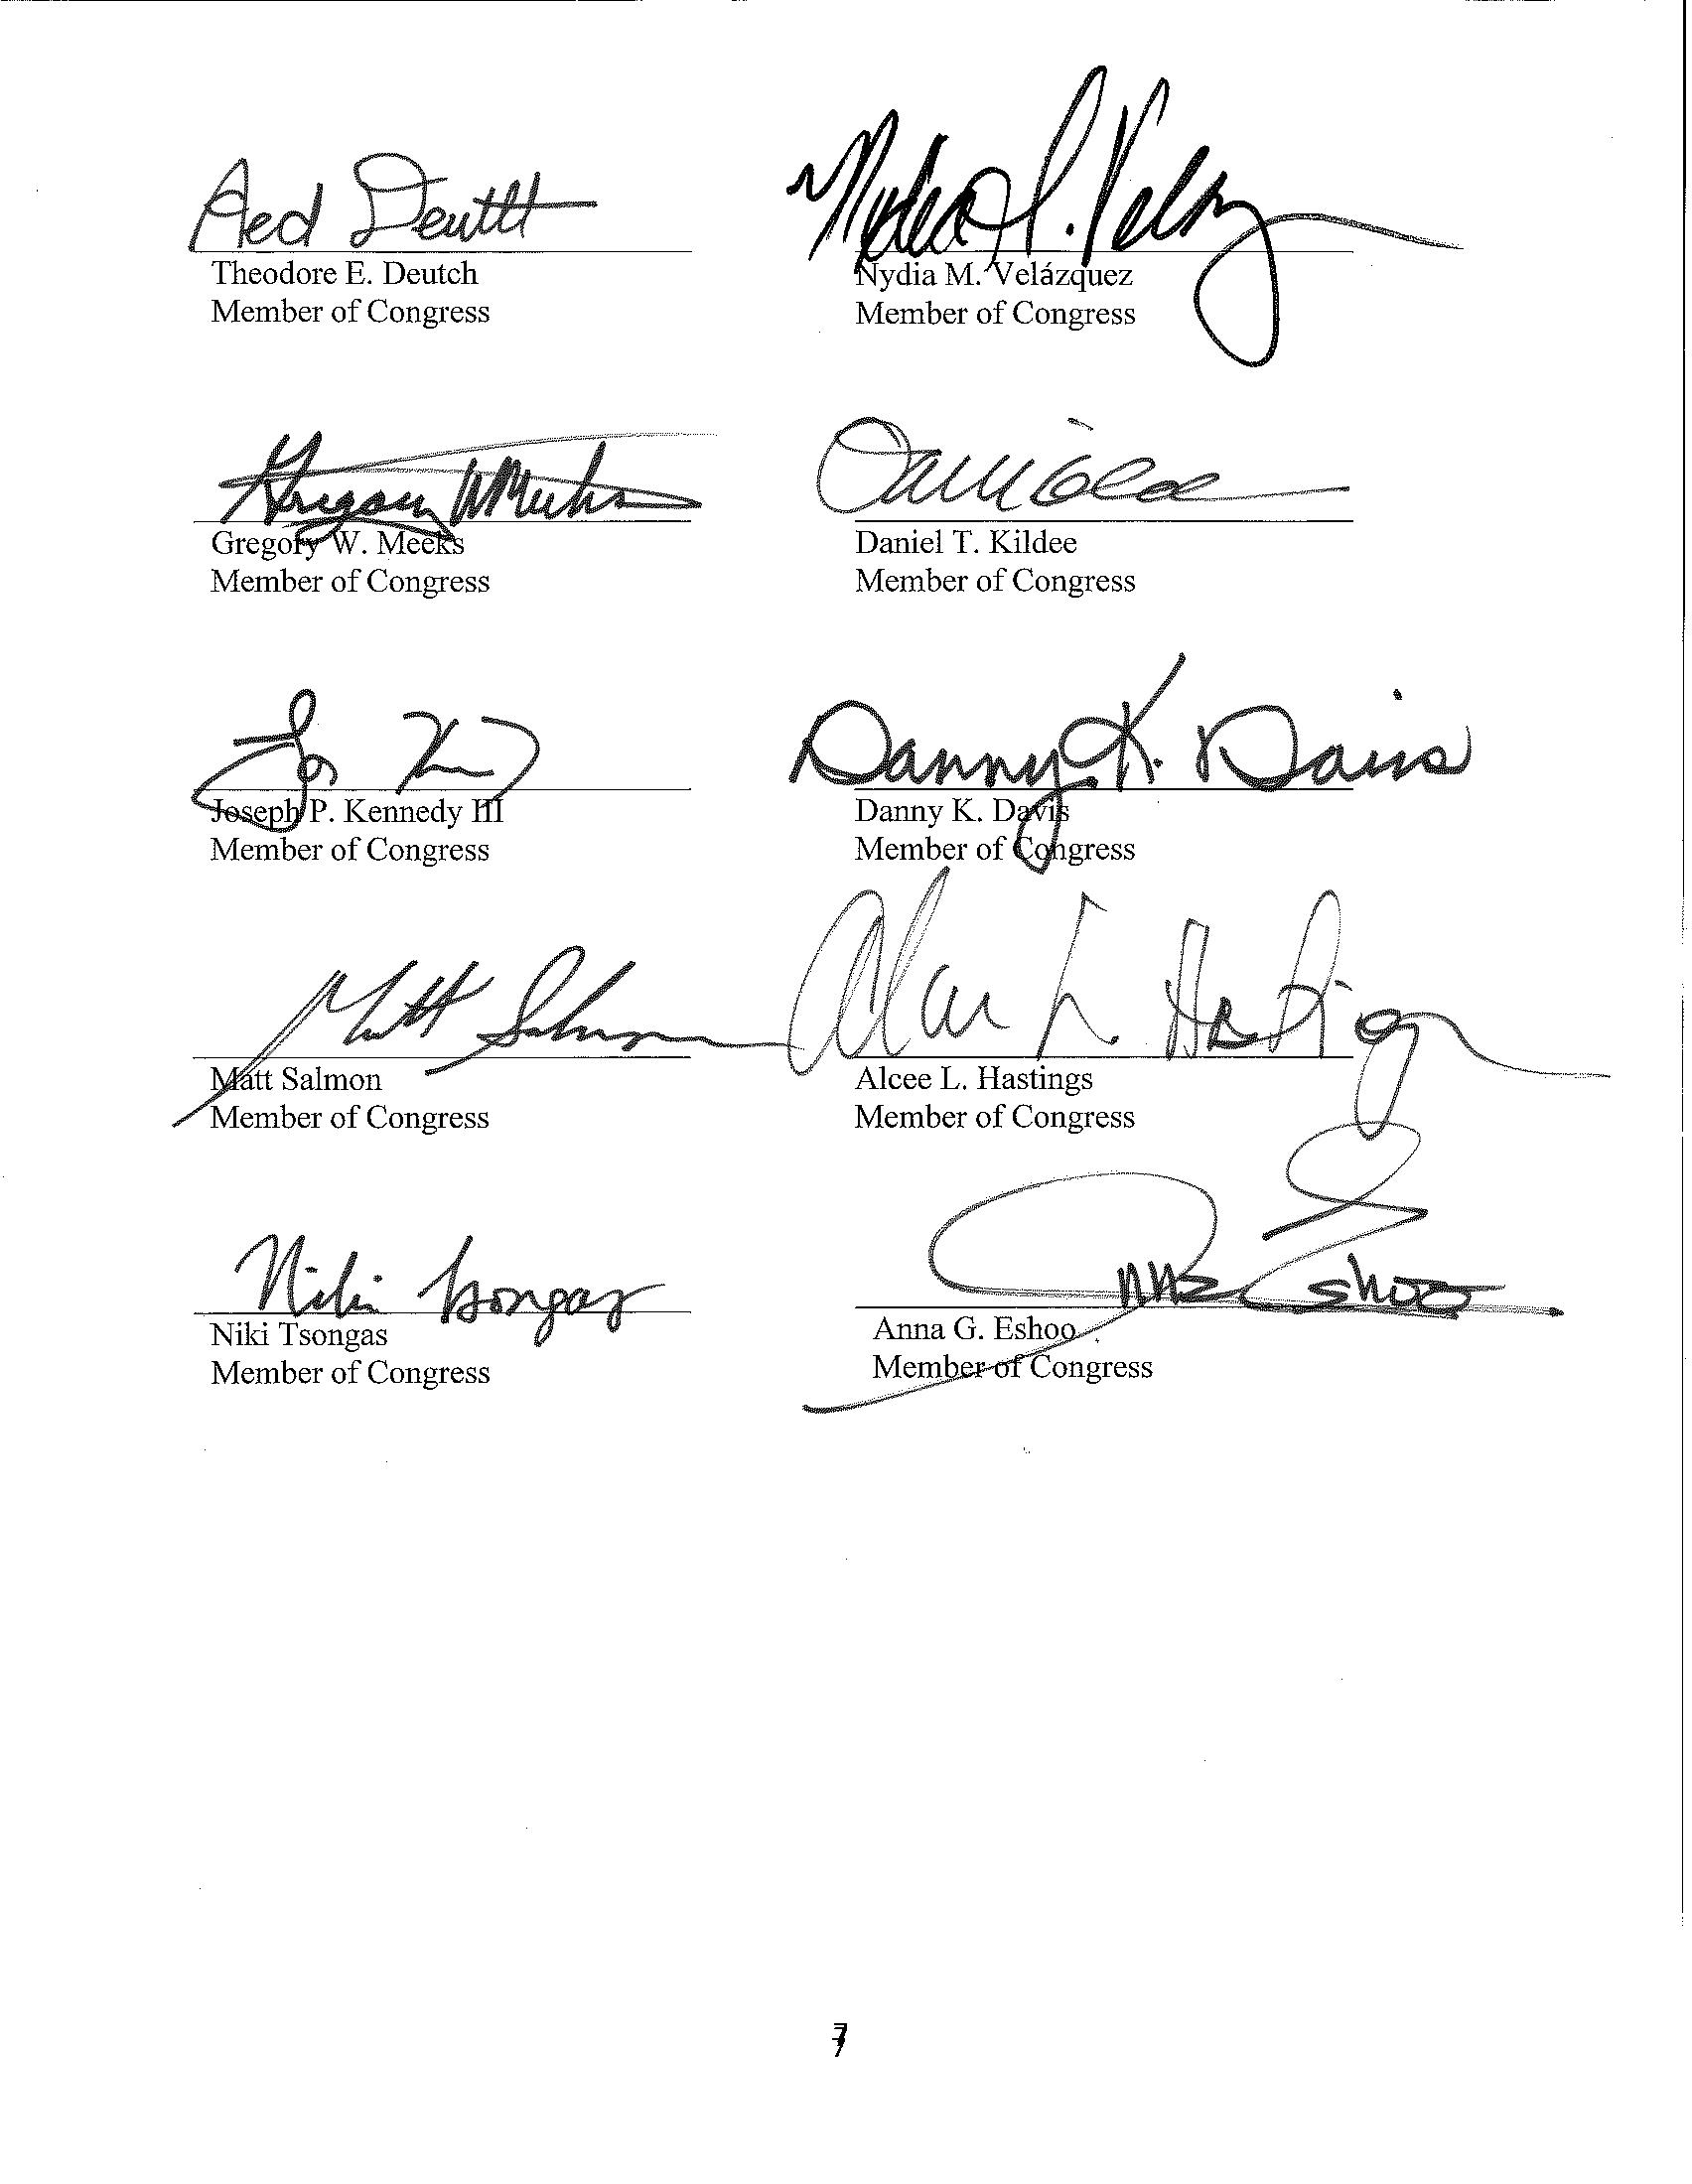 Ted Deutch
Nydia M. Velázquez
Theodore E. Deutch
Nydia M. Velázquez
Member of Congress
Member of Congress
Gregory W Meeks
Dan Kildee
Gregory W. Meeks
Daniel T. Kildee
Member of Congress
Member of Congress
Joe K
Danny K. Davis
Joseph P. Kennedy III
Danny K. Davis
Member of Congress
Member of Congress
Matt Salmon
Alcee L. Hastings
Matt Salmon
Alcee L. Hastings
Member of Congress
Member of Congress
Niki Tsongas
Anna G. Eshoo
Niki Tsongas
Anna G. Eshoo
Member of Congress
Member of Congress
7